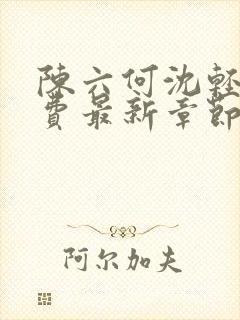 陳六何沈輕
費最新章節
阿尔加夫